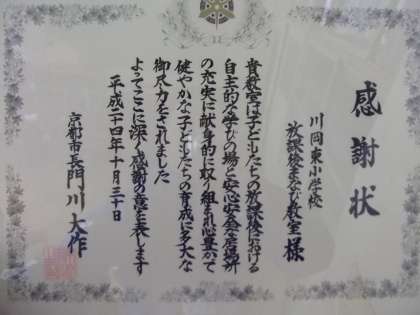 感謝状
川岡東小学校
放課後まなび教室様
貴教室は子どもたちの放課後における
自主的な学びの場と安心安全な居場所
の充実に献身的に取り組まれ心豊かで
健やかな子どもたちの育成に多大な
御尽力をされました
よってここに深く感謝の意を表します
平成二十四年十月三十日
京都市長門川大作